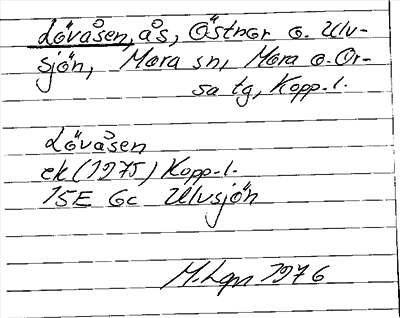 Lövåsen, ås, Östnor o. Ulv-
sjön, Mora sn, Mora o. Or-
sa tg, Kopp. l.
Lövåsen
ek (1975) Kopp. l.
15E 6c Ulvsjön
M. Lgn 1976